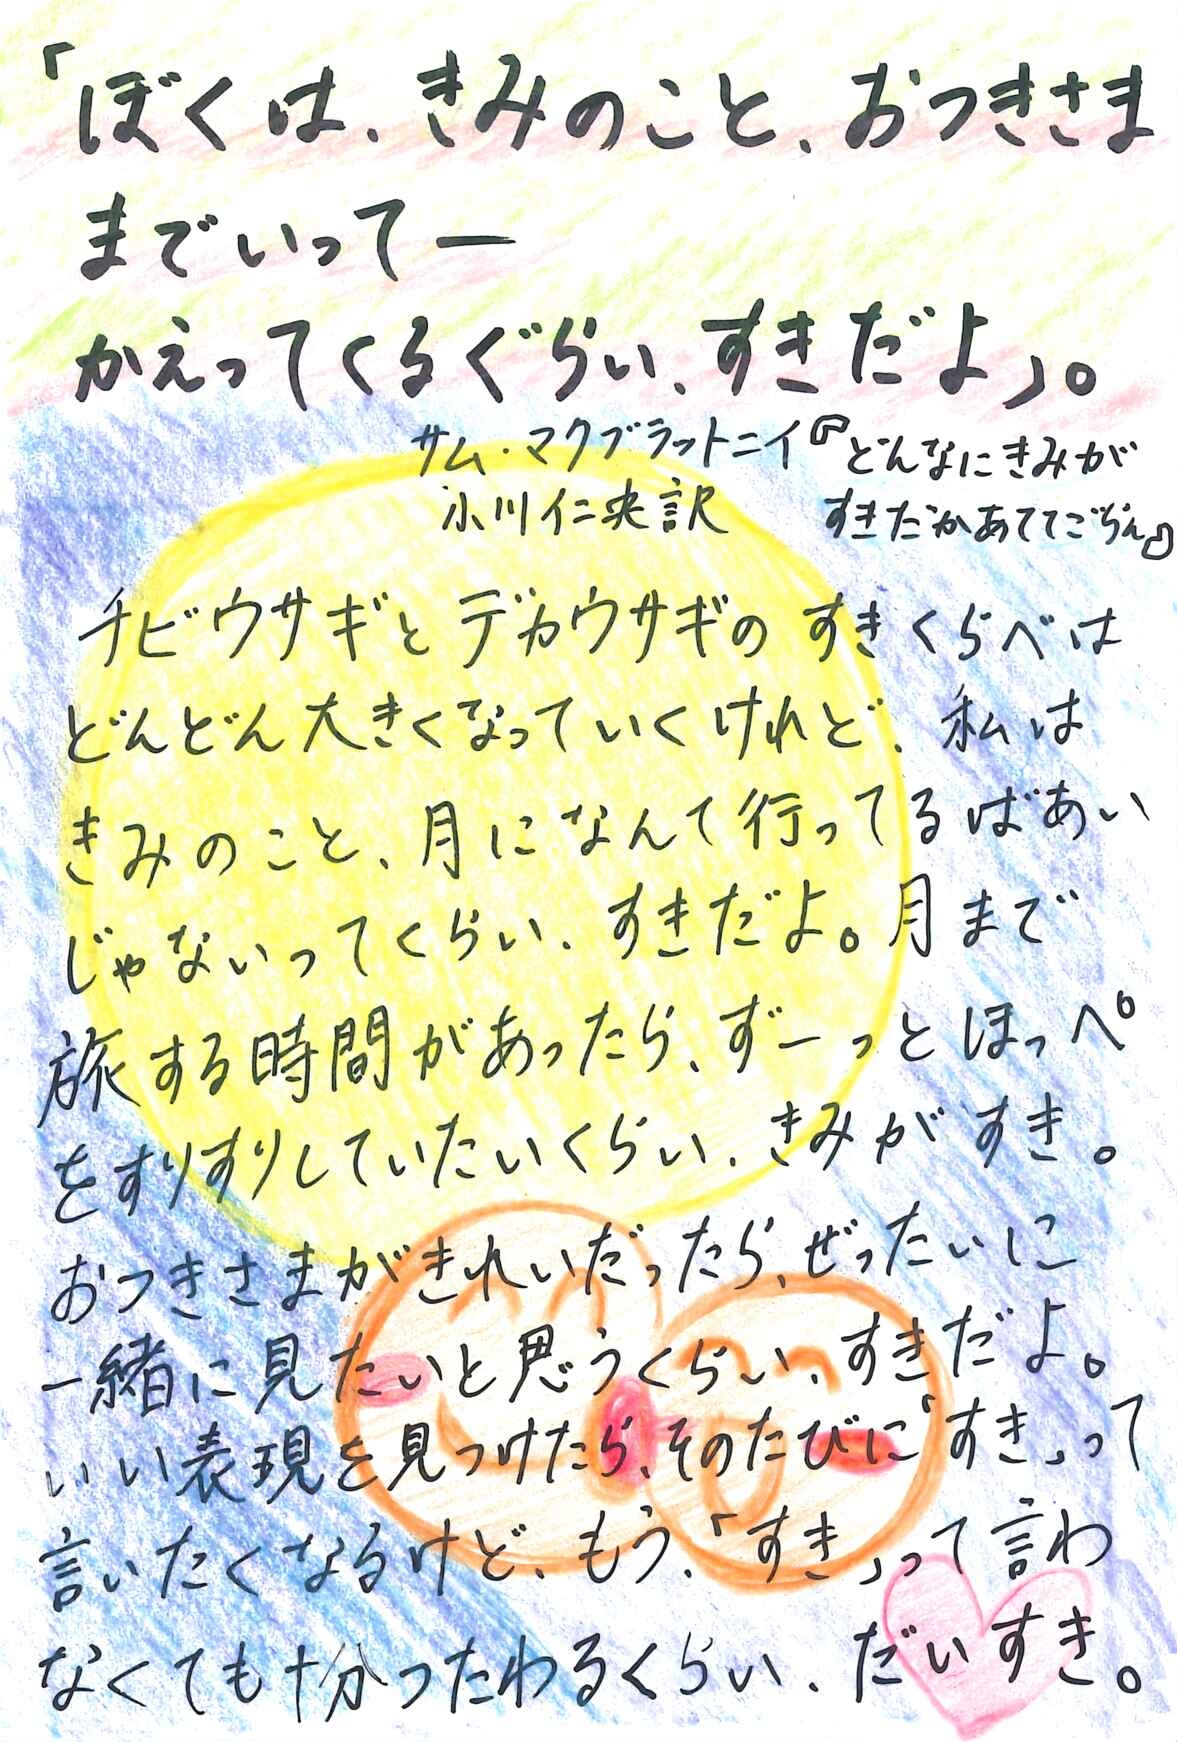 「ぼくは、きみのこと、おつきさま
までいってー
かえってくるぐらい、すきだよ」。
サム・マクブラットニイ『どんなにきみが
小川仁央訳 すきだかあててごらん』
チビウサギとデカウサギのすきくらべは
どんどん大きくなっていくけれど、私は
きみのこと、月になんて行ってるばあい
じゃないってくらい、すきだよ。月まで
旅する時間があったら、ずーっとほっぺ
をすりすりしていたいくらい、きみがすき。
おつきさまがきれいだったら、ぜったいに
一緒に見たいと思うくらい、すきだよ。
いい表現を見つけたら、そのたびに「すき」って
言いたくなるけど、もう、「すき」って言わ
なくても十分つたわるくらい、だいすき。